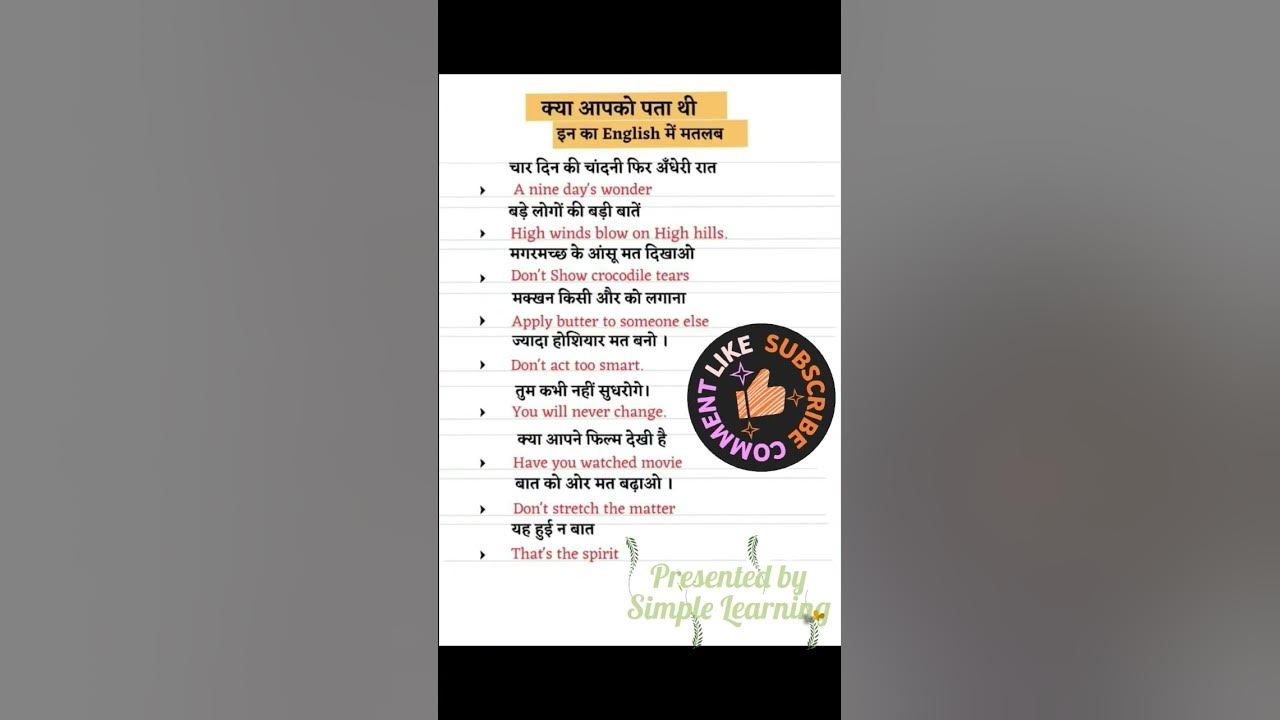 क्या आपको पता थी
इन का English में मतलब
चार दिन की चांदनी फिर अँधेरी रात
A nine day's wonder
बड़े लोगों की बड़ी बातें
High winds blow on High hills.
मगरमच्छ के आंसू मत दिखाओ
Don't Show crocodile tears
मक्खन किसी और को लगाना
Apply butter to someone else
ज्यादा होशियार मत बनो ।
Don't act too smart.
तुम कभी नहीं सुधरोगे।
You will never change.
क्या आपने फिल्म देखी है
Have you watched movie
बात को ओर मत बढ़ाओ ।
Don't stretch the matter
यह हुई न बात
That's the spirit
LIKE SUBSCRIBE COMMENT
Presented by
Simple Learning